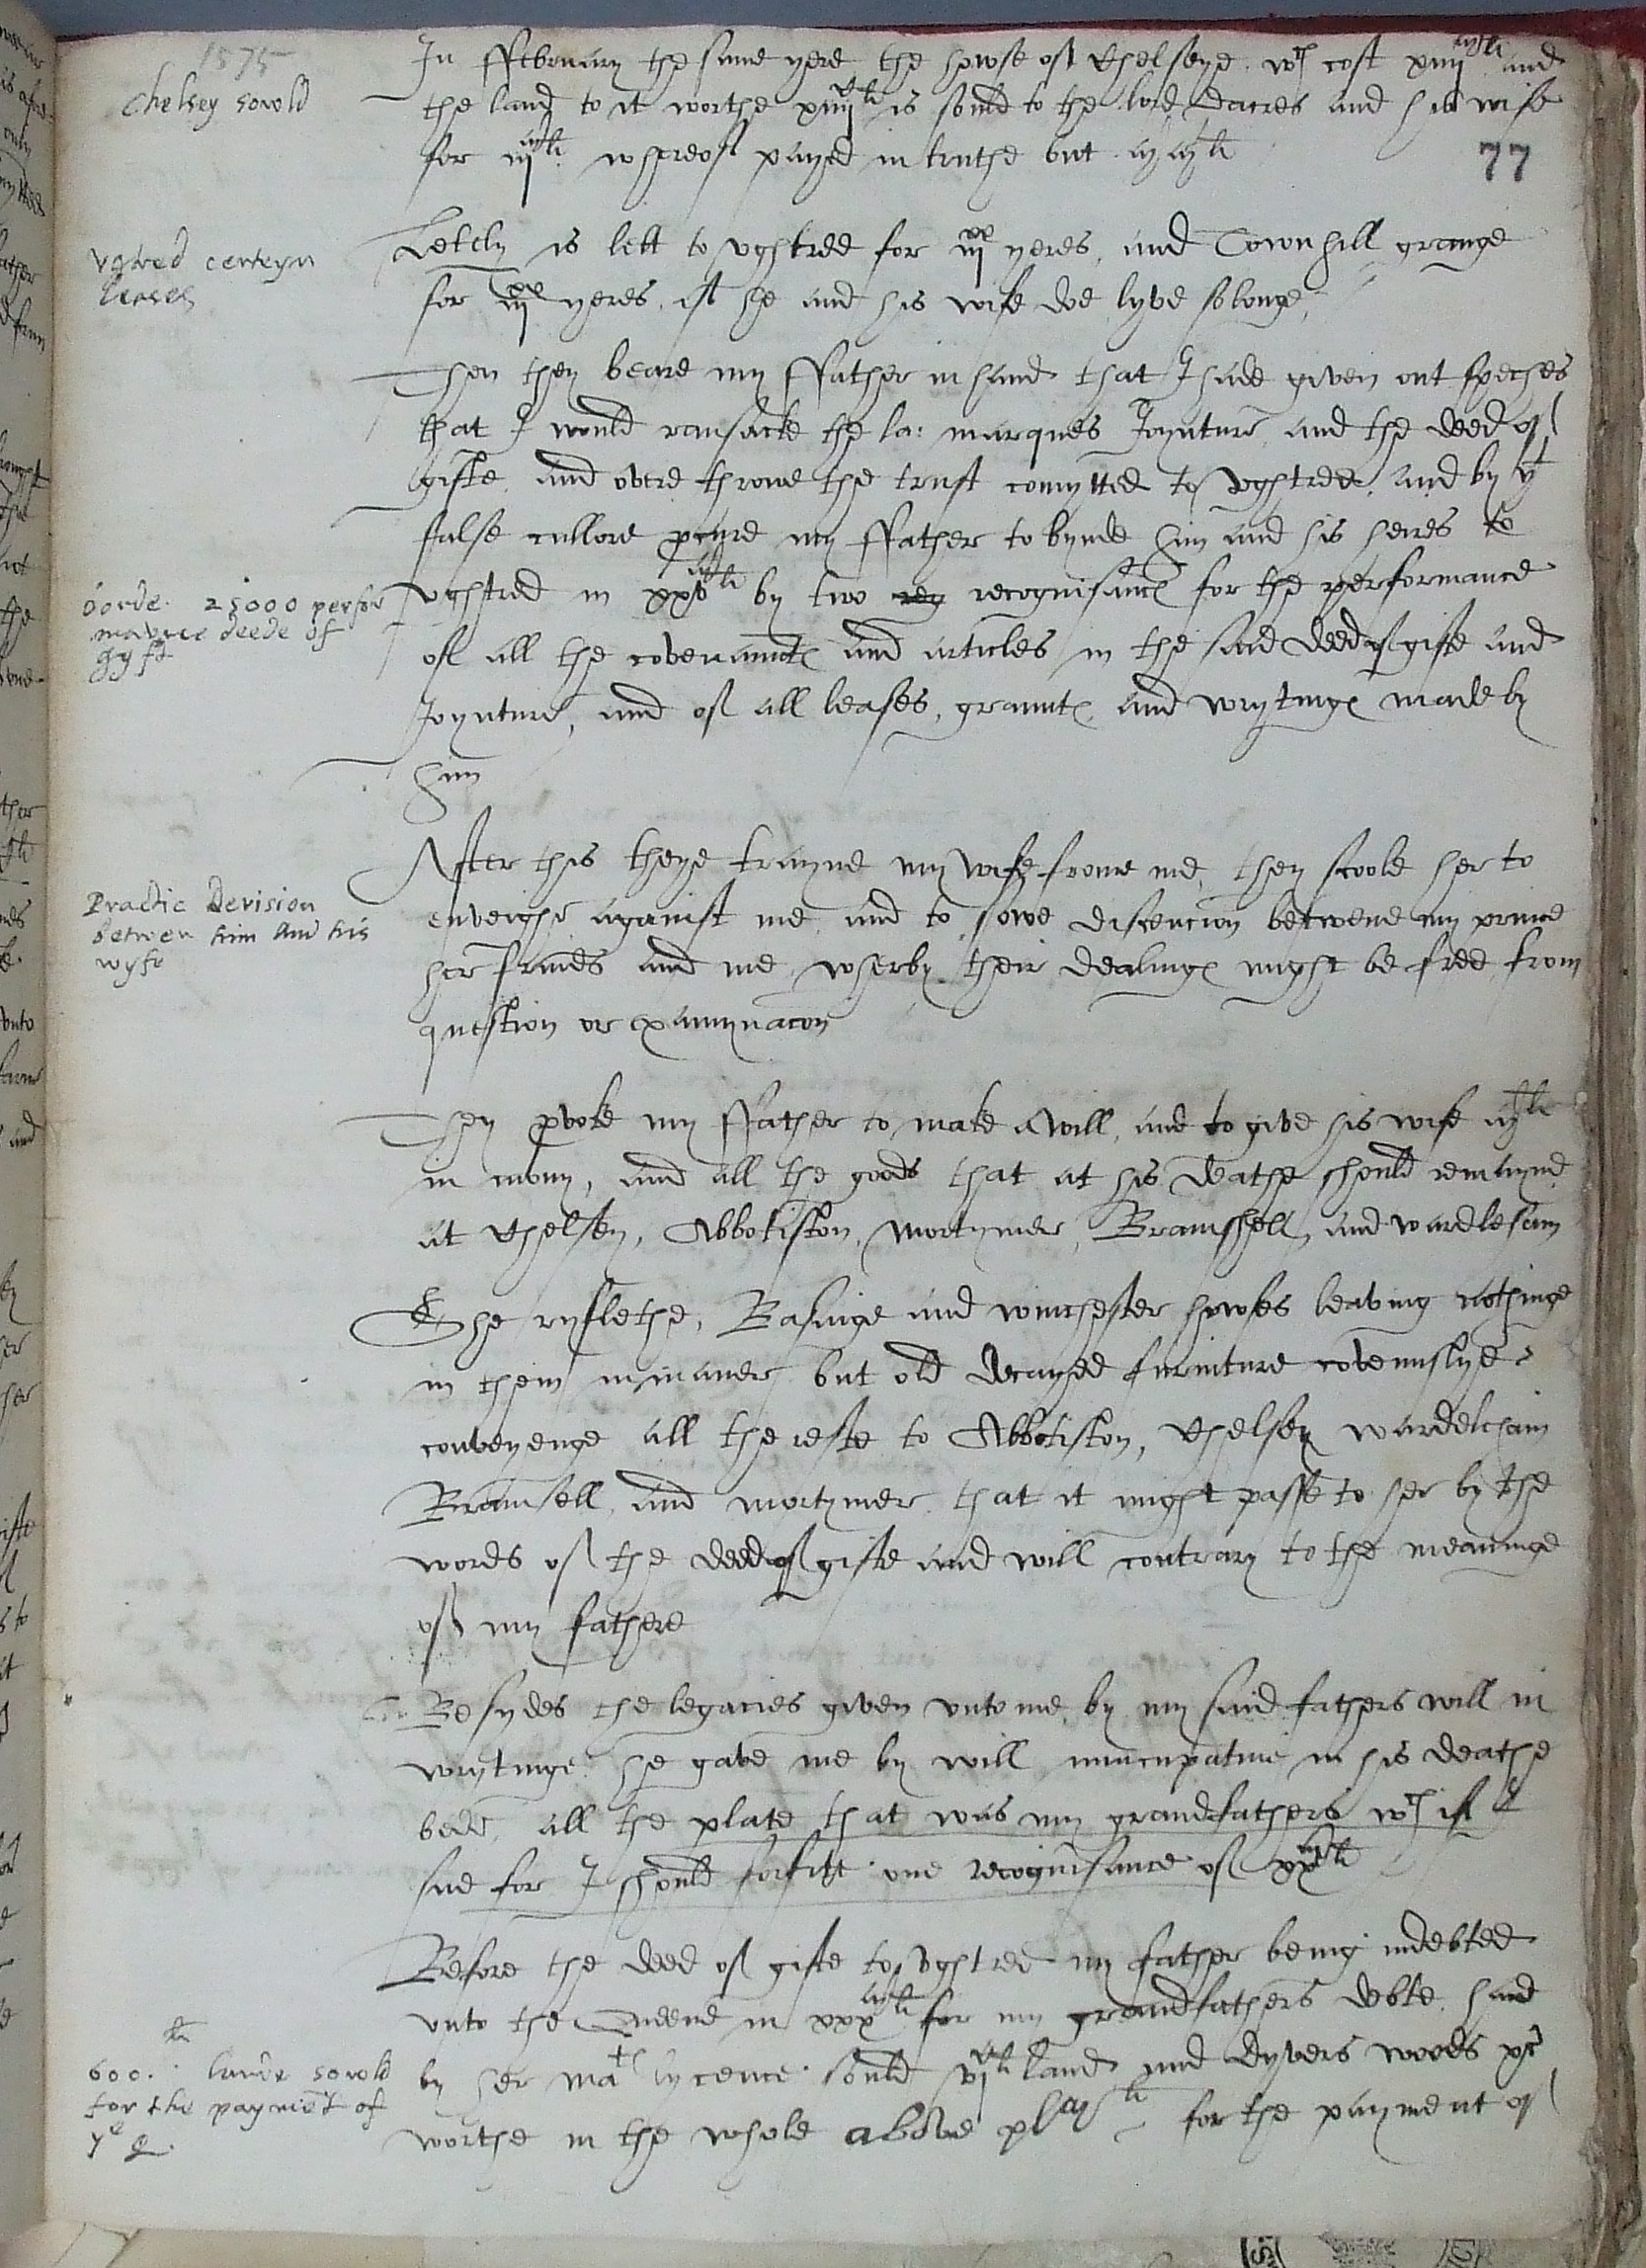 1575
Chelsey sowld
In ffebruary the same yere the howse of Chelseye wch cost xiiij mli and
the land to it worthe xiiij li is sould to the lord Dacres and his wife
for iij mli whereof payed in truthe but ij mli
77
Vgtred certeyn
leases
Letely is lett to vghtred for iij xx yeres, and Townhill grange
for iij xx yeres if he and his wife doe lyve so longe,
Then they beare my ffather in hand that I had given out speches
that I would ransacke the la: marques Joynture and the deed of
gifte and overe throwe the trust comytted to vghtred, and by yt
false cullore pcure my ffather to bynde him and his heires to
bonde. 25000 perfor
mavnce deede of
gyft
vghtred in xxv mli by two reg recognisances for the performance
of all the covenauntes and articles in the said deed of gifte and
Joynture, and of all leases, grauntes and wrytinges made by
him
Practic Devision
betwen him and his
wyfe
After this theye trayne my wife frome me, they scoole her to
enveighe against me and to sowe discencion betwene my prince
her frinds and me wherby their dealinges might be free from
question or examynacon
They pvoke my ffather to make a will, and to give his wife mli
in mony, and all the goods that at his deathe should remayne
at Chelsey, Abbotiston, Mortymer, Bramshell, and wardleham
She ryflethe, Basinge and winchester howses leaving nothinge
in them in maner but old decayed furniture covenuslye
conveyenge all the reste to Abbotiston, Chelsey wardeleham
Bramsell and mortymer that it might passe to her by the
words of the deed of gifte and will contrary to the meaninge
of my fathere
Besydes the legacies given vnto me by my said fathers will in
wrytinge he gave me by will nuncupative in his deathe
bedd, all the plate that was my grandfathers wch if I
sue for I should forfitt one recognisance of xx mli
Before the deed of gifte to vghtred my father being indebted
vnto the Queene in xxx mli for my grandfathers debte, haid
600. li lande sowld
for the payment of
ye q.
by her mats lycence sould vj c li land and dyvers woods
worthe in the whole above xl mli for the payment of